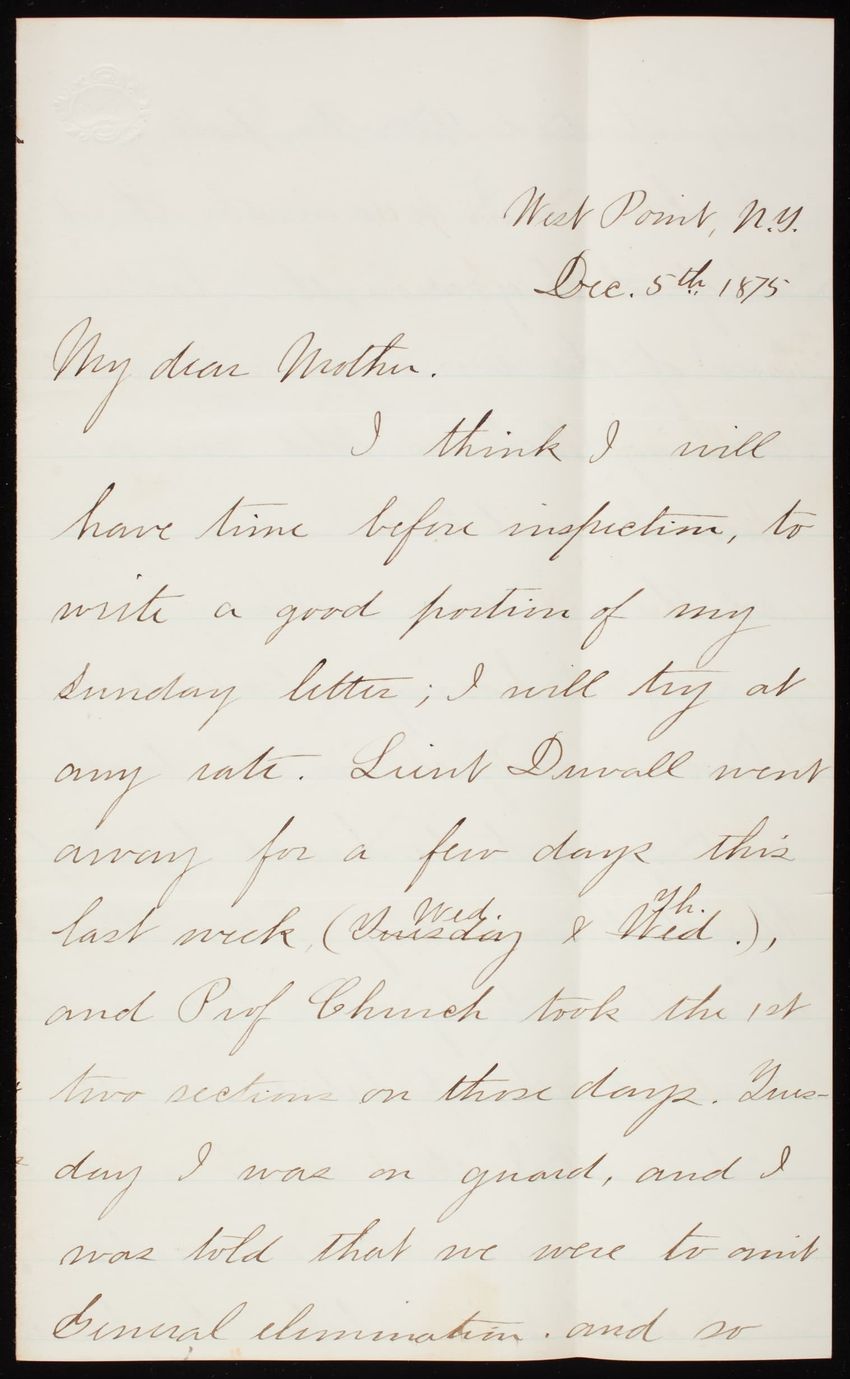 West Point, N.Y.
Dec. 5th. 1875
My dear Mother.
I think I will
have time before inspection, to
write a good portion of my
Sunday letter; I will try at
any rate. Lieut Duvall went
away for a few days this
last week, (Tuesday Wed. & Wed Th.),
and Prof Church took the 1st
two sections on those days. Tues-
day I was on guard, and I
was told that we were to omit
General elimination. and so